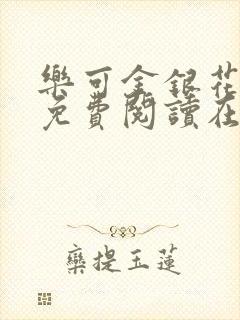 樂可金銀花
免費閱讀在
欒提玉蓮